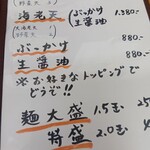 (野菜天)
海老天 (ぶっかけ 生醤油 1,380-
ぶっかけ 880-
生醤油 880-
※お好きなトッピングで
どうぞ!!
麺大盛 1.5玉
特盛 2.0玉